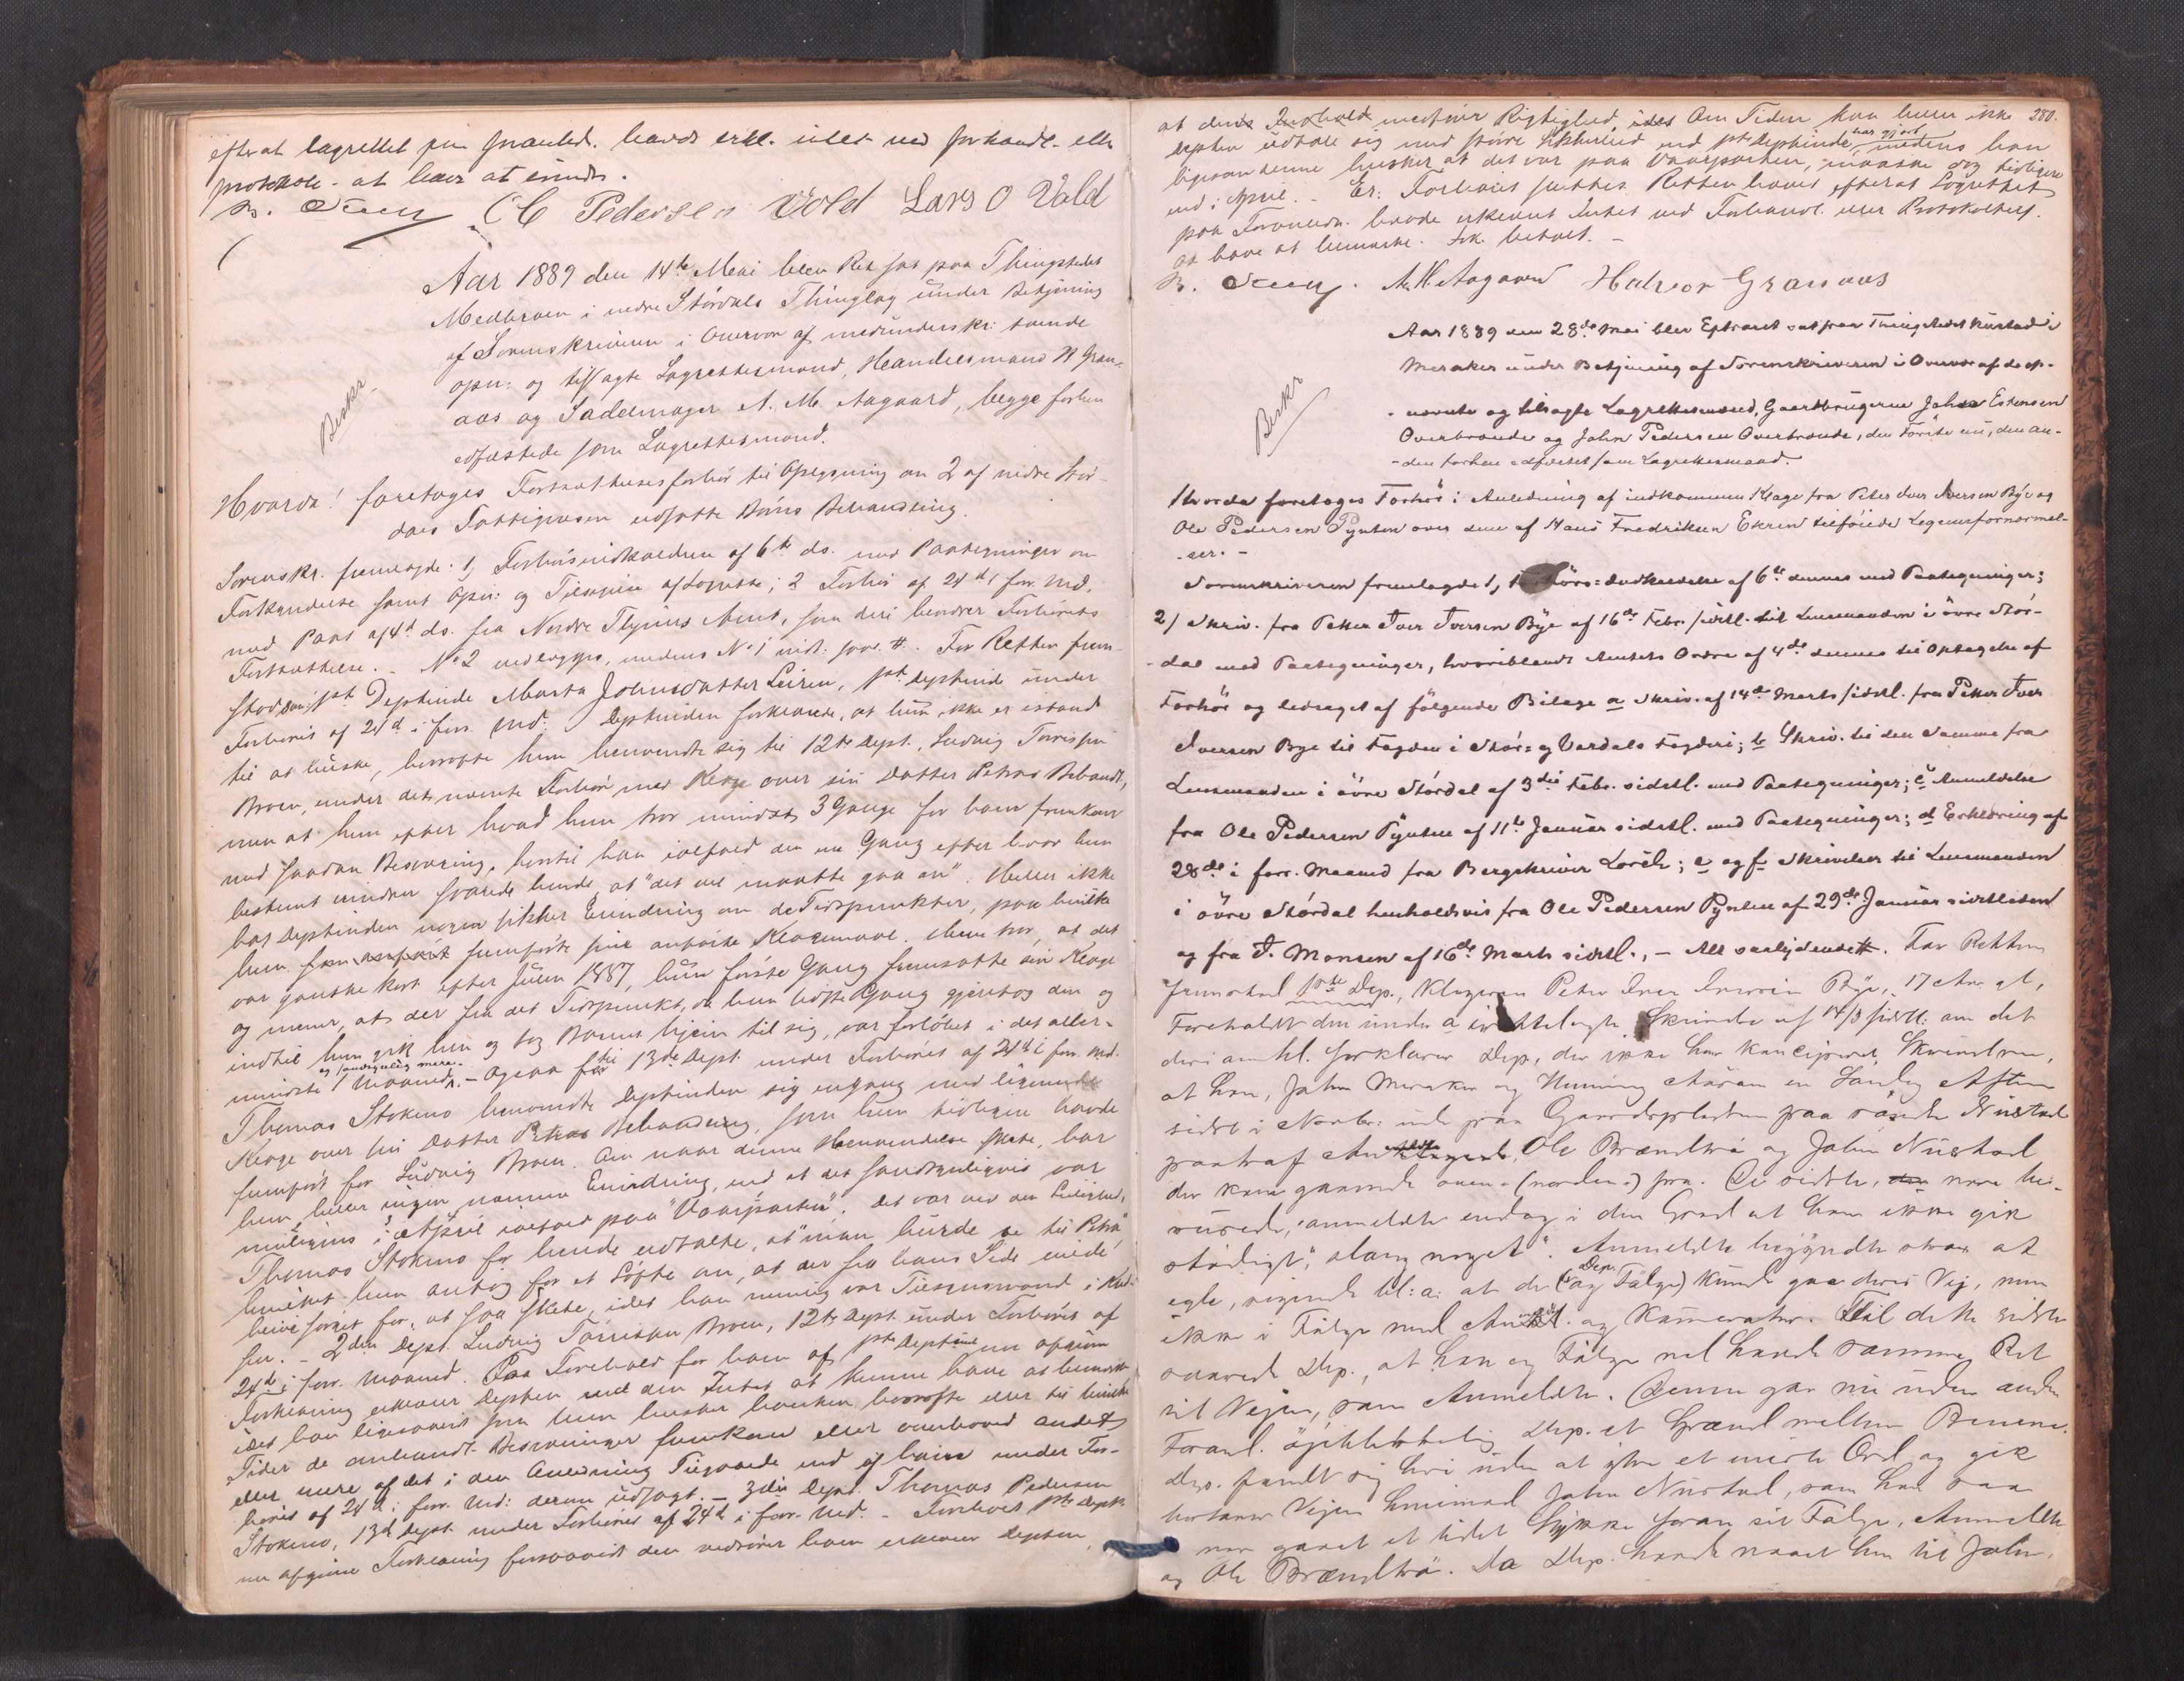 efterat lagrettet paa Foranled. havde erkl. intet ved forhandl. eller
protokole. at have at erindre.
C Pedersen Vold Lars O Vold
Aar 1889 den 14de Mai blev Ret sat paa Thingstedet
Medbroen i nedre Stördals Thinglag under Betjening
af Sorenskriveren i Overvær af medunderskr: tvende
opn: og tilsagte Lagrettesmænd, Handelsmand H Gran-
aas og Sadelmager A. M. Aagaard, begge forhen
edfæstede som Lagrettesmænd.
Beskr.
Hvorda! foretoges Fortsættelsesforhör til Oplysning om 2 af nedre Stör-
dals Fattigvæsen udsatte Börns Behandling.
Sorenskr. fremlagde: 1, Forhörsindkaldelse af 6te ds. med Paategninger om
Forkyndelse samt Opn: og Tilsigelse af Lagrette; 2 Forhör af 24de forr. Md.
med Paat. af 4de ds. fra Nordre Thjems Amt, som deri beordrer Forhörets
Fortsættelse. - No 2 vedlægges, medens No 1 indt. saal. #. For Retten frem-
stod som 1ste Deptinde Marta Johnsdatter Leiren, 1ste Deptinde under
Forhöret af 24de i forr. Md. Deptinden forklarede, at hun, ikke er istand
til at huske, hvorofte hun henvendte sig til 12te Dept., Ludvig Torrissen
Moen, under det nævnte Forhör med Klage over sin Datter Petras Behandl.,
men at hun efter hvad hun tror mindst 3 Gange for ham fremkom
med saadan Besværing, hvortil han ialfald den ene Gang efter hvad hun
bestemt mindes svarede hende, at "det vel maatte gaa an". Heller ikke
har Deptinden nogen sikker Erindring om de Tidspunkter, paa hvilke
hun fremförte sine anförte Klagemaal. Hun tror, at det
var ganske kort efter Julen 1887, hun förste Gang fremsatte sin Klage
og mener, at der fra det Tidspunkt, da hun sidste Gang gjentog den og
indtil hun gik hen og tog Barnet hjem til sig, var forlöbet i det aller-
mindste 1 Maaned og sandsynlig mere. - Ogsaa til 13de Dept. under Forhöret af 24de i forr. Md.
Thomas Stokmo henvendte Deptinden sig engang med lignende
Klage over sin Datter Petras Behandling, som hun tidligere havde
fremfört for Ludvig Moen. Om naar denne Henvendelse skete, har
hun heller ingen nærmere Erindring, end at det sandsynligvis var
muligens i April ialfald paa "Vaarparten". Det var ved den Leilighed,
Thomas Stokmo for hende udtalte, at "man burde se til Petra",
hvilket hun antog for et Löfte om, at der fra hans Side vilde
blive sörget for, at saa skete, idet han nemlig var Tilsynsmand i Kred-
sen. - 2den Dept. Ludvig Torrissen Moen, 12te Dept. under Forhöret af
24de i forr. Maaned. Paa Forehold for ham af 1ste Deptindes nu afgivne
Forklaring erklærer Depten ved den Intet at kunne have at bemærke
idet han ligesaavidt som hun husker hverken hvorofte eller til hvilke
Tider de omhandl. Besværinger fremkom eller overhoved andet
eller mere af det i den Anledning Tilgaaede end af ham under For-
höret af 24de i forr. Md: derom udsagt. - 3die Dept. Thomas Pedersen
Stokmo, 13de Dept. under Forhöret af 24de i forr. Md. - Foreholdt 1ste Deptindes
nu afgivne Forklaring forsaavidt den vedrörer ham erklærer Depten,
280.
at dens Indhold medförer Rigtighed. Om Tiden kan heller ikke
Depten udtale sig med större Sikkerhed end 1ste Deptinde har gjort, medens han
ligesom denne husker at det var paa Vaarparten, maaske dog tidligere
end i April. - Er: Forhöret sluttet. Retten hævet efterat Lagrettet
paa Foranledn. havde erklæret Intet ved Forhandl. eller Protokollens
at have at bemærke. Frk. betalt. -
A. M. Aagaard Halvor Granaas
Aar 1889 den 28de Mai blev Extraret sat paa Thingstedet Nustad i
Meraker under Betjening af Sorenskriveren i Overvær af de op-
- nævnte og tilsagte Lagrettesmænd, Gaardbrugerne John Estensen
Overbrænde og John Pedersen Overbrænde, den Förste nu, den an-
-den forhen edfæstet som Lagrettesmand.
Beskr
Hvorda foretoges Forhör i Anledning af indkommen Klage fra Peter Iver Iversen Bye og
Ole Pedersen Pynten over dem af Hans Fredriksen Ekren tilföiede Legemsfornærmel-
-ser. -
Sorenskriveren fremlagde 1, Forhörs-Indkaldelse af 6te dennes med Paategninger;
2) Skriv. fra Peter Iver Iversen Bye af 16de Febr. sidstl. til Lensmanden i övre Stör-
-dal med Paategninger, hvoriblandt Amtets Ordre af 4de dennes til Optagelse af
Forhör og ledsaget af fölgende Bilage a Skriv. af 14de Marts sidstl. fra Peter Iver
Iversen Bye til Fogden i Stör- og Værdals Fogderi; b Skriv. til den Samme fra
Lensmanden i övre Stördal af 3die Febr. sidstl. med Paategninger; c Anmeldelse
fra Ole Pedersen Pynten af 11te Januar sidstl. med Paategninger; d Erklæring af
28de i forr. Maaned fra Bergskriver Lorch; e og f Skrivelser til Lensmanden
i övre Stördal henholdsvis fra Ole Pedersen Pynten af 29de Januar sidstleden
og fra I. Monsen af 16de Marts sidstl., - Alt saalydende #. For Retten
fremstod 1ste Dep., Klageren Peter Iver Iversen Bye, 17 Aar gl,
Foreholdt den under a irettelagte Skrivelse af 14/3 sidstl. om det
deri anhl. forklarer Dep, der ikke har konciperet Skrivelsen,
at han, John Meraker og Henning Aasam en Söndag Aften
sidst i Novbr: inde paa Gaardspladsen paa söndre Nustad
paatraf Anmeldte, Ole Brændtrö og John Nustad
der kom gaaende oven- (norden-) fra. De sidste, vare be-
rusede, anmeldte endog i den Grad at han ikke gik
stödigt, "slang noget". Anmeldte begyndte strax at
egle, sigende bl: a: at de (Dep. og Fölge) kunde gaa deres Vej, men
ikke i Fölge med Anmeldt. og Kamerater. Til dette sidste
svarede Dep., at han og Fölge vel havde samme Ret
til Vejen, som Anmeldte. Denne gav nu uden anden
Foranl. öjeblikkelig Dep. et Spænd mellem Benene.
Dep. fandt sig heri uden at ytre et eneste Ord og gik
bortover Vejen henimod John Nustad, som havde
gaaet et lidet Stykke foran sit Fölge, Anmeldte
og Ole Brændtrö. Da Dep. havde naaet hen til John,